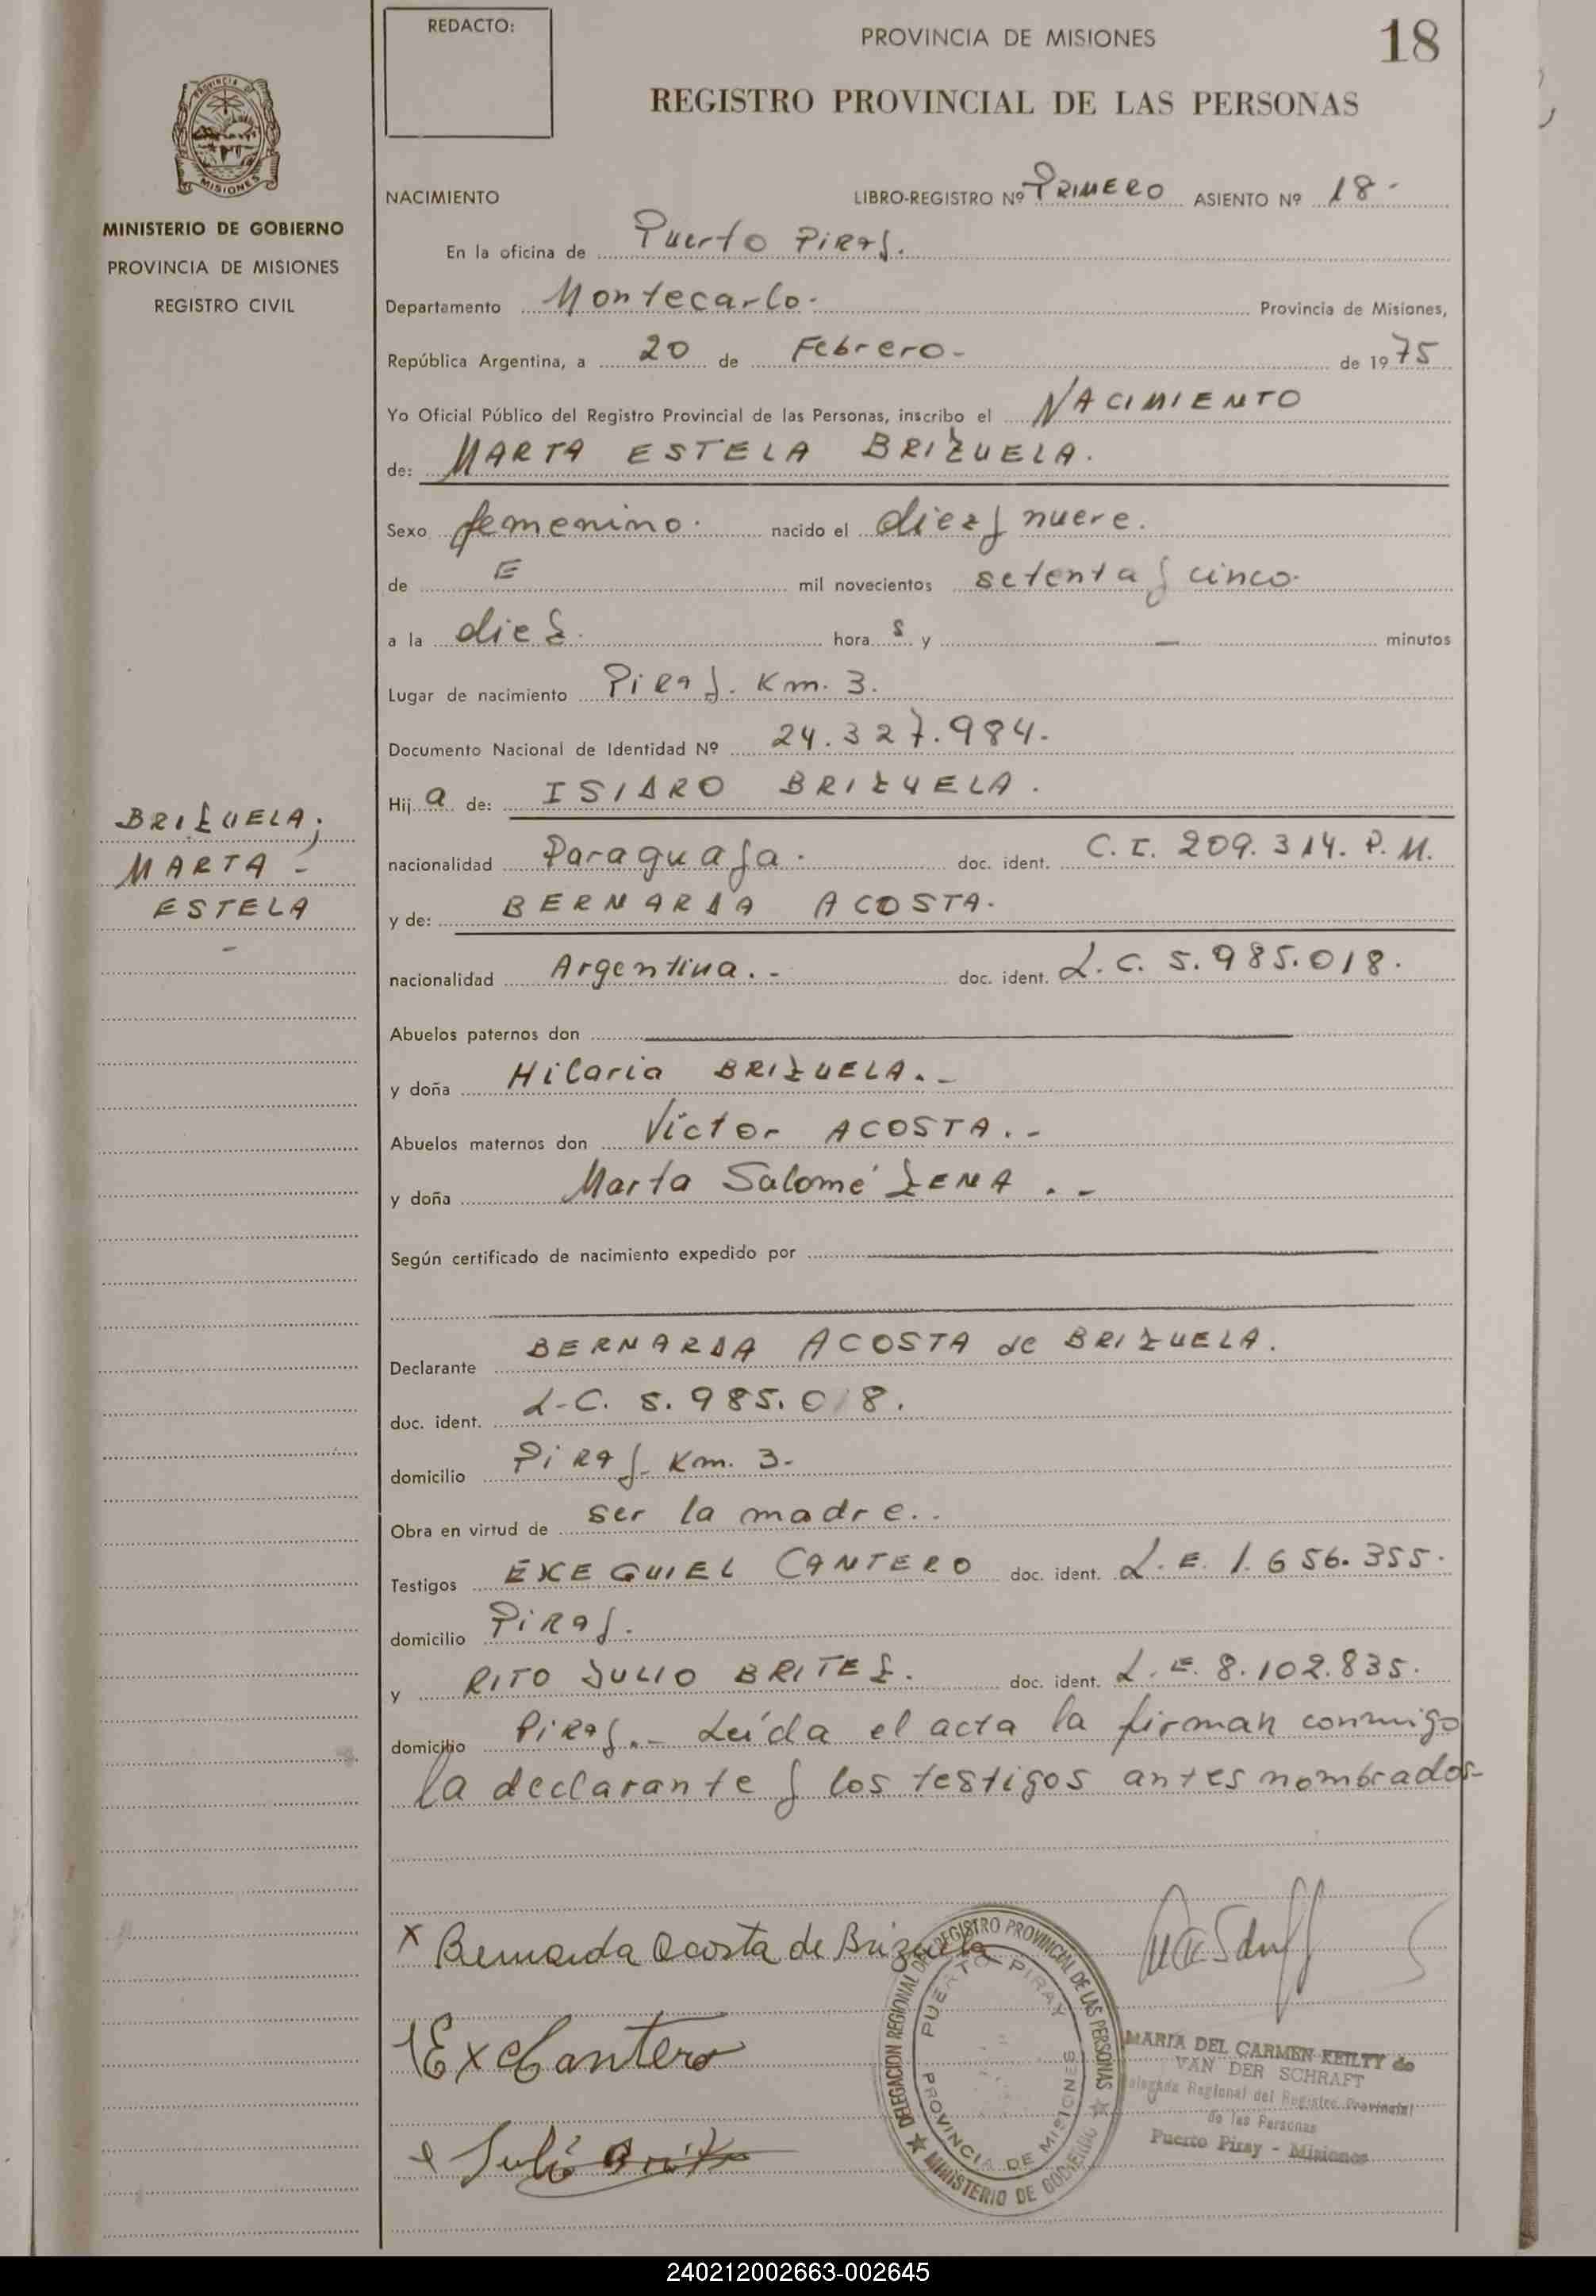 REDACTO:
PROVINCIA DE MISIONES
18
REGISTRO PROVINCIAL DE LAS PERSONAS
PROVINCIA DE
MISIONES
MINISTERIO DE GOBIERNO
PROVINCIA DE MISIONES
REGISTRO CIVIL
NACIMIENTO LIBRO-REGISTRO Nº PRIMERO ASIENTO Nº 18.-
En la oficina de Puerto PIRAY.
Departamento Montecarlo.- Provincia de Misiones,
República Argentina, a 20 de Febrero- de 1975
Yo Oficial Público del Registro Provincial de las Personas, inscribo el NACIMIENTO
de: MARTA ESTELA BRIZUELA.
Sexo femenino. nacido el diez y nueve.
de E mil novecientos setenta y cinco.
a la diez. hora s y — minutos
Lugar de nacimiento PIRAY. Km. 3.
Documento Nacional de Identidad Nº 24.327.984.-
Hij a de: ISIDRO BRIZUELA.
nacionalidad Paraguaya. doc. ident. C. I. 209.314. P. M.
y de: BERNARDA ACOSTA.
nacionalidad Argentina.- doc. ident. L. C. 5.985.018.
BRIZUELA;
MARTA -
ESTELA
-
Abuelos paternos don
y doña Hilaria BRIZUELA.-
Abuelos maternos don Víctor ACOSTA.-
y doña Marta Salomé ZENA.-
Según certificado de nacimiento expedido por
Declarante BERNARDA ACOSTA de BRIZUELA.
doc. ident. L-C. 5.985.018.
domicilio PIRAY- Km. 3.-
Obra en virtud de ser la madre..
Testigos EXEQUIEL CANTERO doc. ident. L. E. 1.656.355.
domicilio PIRAY.
y RITO JULIO BRITEZ. doc. ident. L. E. 8.102.835.
domicilio PIRAY.- Leída el acta la firman conmigo
la declarante y los testigos antes nombrados-
x Bernarda Acosta de Brizuela
Ex Cantero
DELEGACION REGIONAL DEL REGISTRO PROVINCIAL DE LAS PERSONAS
MINISTERIO DE GOBIERNO
PUERTO PIRAY
PROVINCIA DE MISIONES
MARIA DEL CARMEN KEILTY de
VAN DER SCHRAFT
Delegada Regional del Registro Provincial
de las Personas
Puerto Piray - Misiones
240212002663-002645